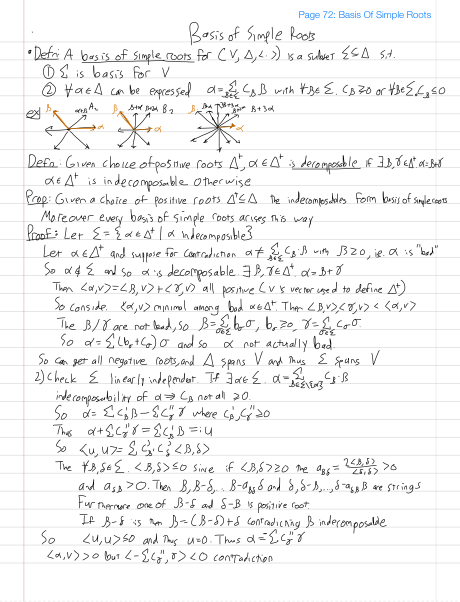 Page 72: Basis Of Simple Roots
Basis of Simple Roots
• Defn: A basis of simple roots for (V, Δ, <·,·>) is a subset Σ⊆Δ s.t.
① Σ is basis for V
② ∀α∈Δ can be expressed α=Σ_{β∈Σ} C_β β with ∀β∈Σ, C_β≥0 or ∀β∈Σ C_β≤0
ex) β α+β A₂ α β B₂ α β β+3α α
Defn: Given choice of positive roots Δ⁺, α∈Δ⁺ is decomposable if ∃β,γ∈Δ⁺ α=β+γ
α∈Δ⁺ is indecomposable otherwise
Prop: Given a choice of positive roots Δ⁺⊆Δ the indecomposables form basis of simple roots
Moreover every basis of simple roots arises this way
Proof: Let Σ={α∈Δ⁺ | α indecomposable}
Let α∈Δ⁺ and suppose for contradiction α≠Σ_{β∈Σ} C_β β with β≥0, ie. α is "bad"
So α∉Σ and so α is decomposable. ∃β,γ∈Δ⁺. α=β+γ
Then <α,v>=<β,v>+<γ,v> all positive (v is vector used to define Δ⁺)
So consider <α,v> minimal among bad α∈Δ⁺. Then <β,v>,<γ,v> < <α,v>
The β/γ are not bad, so β=Σ_{σ∈Σ} b_σ σ, b_σ≥0, γ=Σ_{σ∈Σ} c_σ σ
So α=Σ(b_σ+c_σ)σ and so α not actually bad.
So can get all negative roots, and Δ spans V and thus Σ spans V
2) Check Σ linearly independent. If ∃α∈Σ. α=Σ_{β∈Σ\{α}} C_β β
indecomposability of α ⇒ C_β not all ≥0.
So α=ΣC'_β β-ΣC''_γ γ where C'_β, C''_γ≥0
Thus α+ΣC''_γ γ=ΣC'_β β=:u
So <u,u>=ΣC'_β C''_δ <β,δ>
The ∀β,δ∈Σ. <β,δ>≤0 since if <β,δ>≥0 the a_{βδ}=2<β,δ>/<δ,δ> >0
and a_{δβ}>0. Then β,β-δ,...β-a_{βδ}δ and δ,δ-β,...,δ-a_{δβ}β are strings
Furthermore one of β-δ and δ-β is positive root.
If β-δ is then β=(β-δ)+δ contradicting β indecomposable
So <u,u>≤0 and thus u=0. Thus α=ΣC''_γ γ
<α,v>>0 but <-ΣC''_γ, γ><0 contradiction